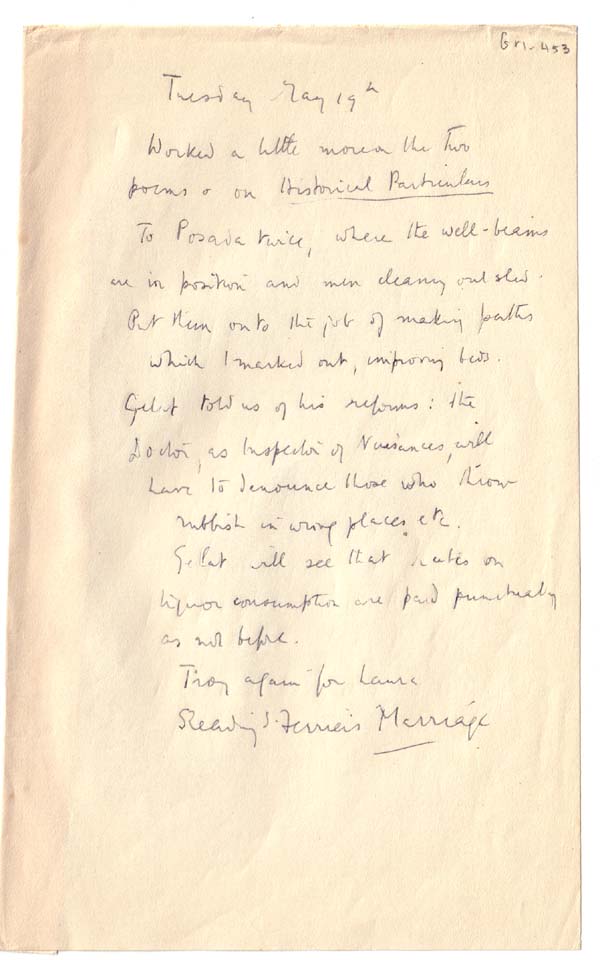 Gr1-453
Tuesday May 19th
Worked a little more on the two
poems & on Historical Particulars
To Posada twice, where the well-beams
are in position and men cleaning out shed.
Put them onto the job of making paths
which I marked out, improving beds.
Gelat told us of his reforms: the
Doctor, as Inspector of Nuisances, will
have to denounce those who throw
rubbish in wrong places etc.
Gelat will see that rates on
liquor consumption are paid punctually
as not before.
Troy again for Laura
Reading S. Ferrier's Marriage